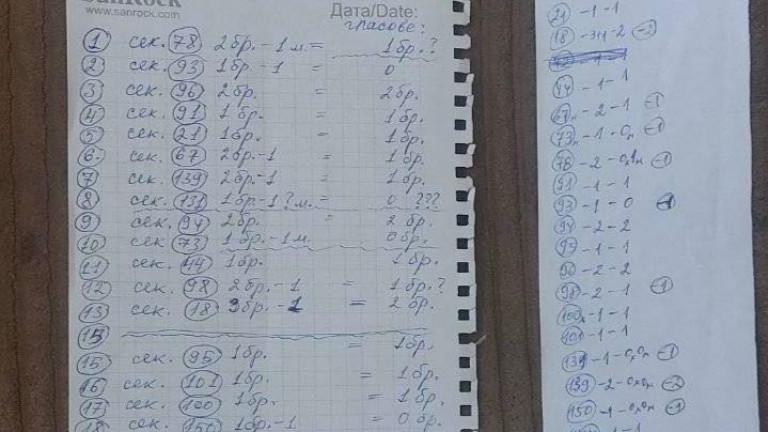 SanRock
www.sanrock.com
Дата/Date:
гласове:
1 сек. 78 2бр.-1м.= 1бр.?
2 сек. 93 1бр.-1 = 0
3 сек. 96 2бр. = 2бр.
4 сек. 91 1бр. = 1бр.
5 сек. 21 1бр. = 1бр.
6. сек. 67 2бр.-1 = 1бр.
7 сек. 139 2бр.-1 = 1бр.
8 сек. 131 1бр-1?м.= 0 ???
9 сек. 94 2бр. = 2бр.
10 сек 73 1бр.-1м. 0бр.
11 сек. 44 1бр. 1бр.
12 сек. 98 2бр.-1 = 1бр.?
13 сек. 18 3бр.-1 = 2бр.
15 сек. 95 1бр. = 1бр.
16 сек. 101 1бр. = 1бр.
17 сек. 100 1бр. = 1бр.
18 сек. 150 1бр.-1 = 0бр.
21 -1-1
18 -2
44 -1-1
67 -2-1 -1
73 -1-0 -1
78 -2 -1
91 -1-1
93 -1-0 -1
94 -2-2
97 -1-1
96 -2-2
98 -2-1 -1
100 -1-1
101 -1-1
131 -1 -1
139 -2 -2
150 -1 -1